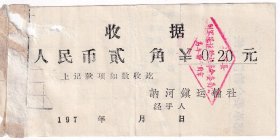 收据
人民币贰角¥0.20元
上记款项如数收讫
讷河镇运输社
经手人
197 年 月 日